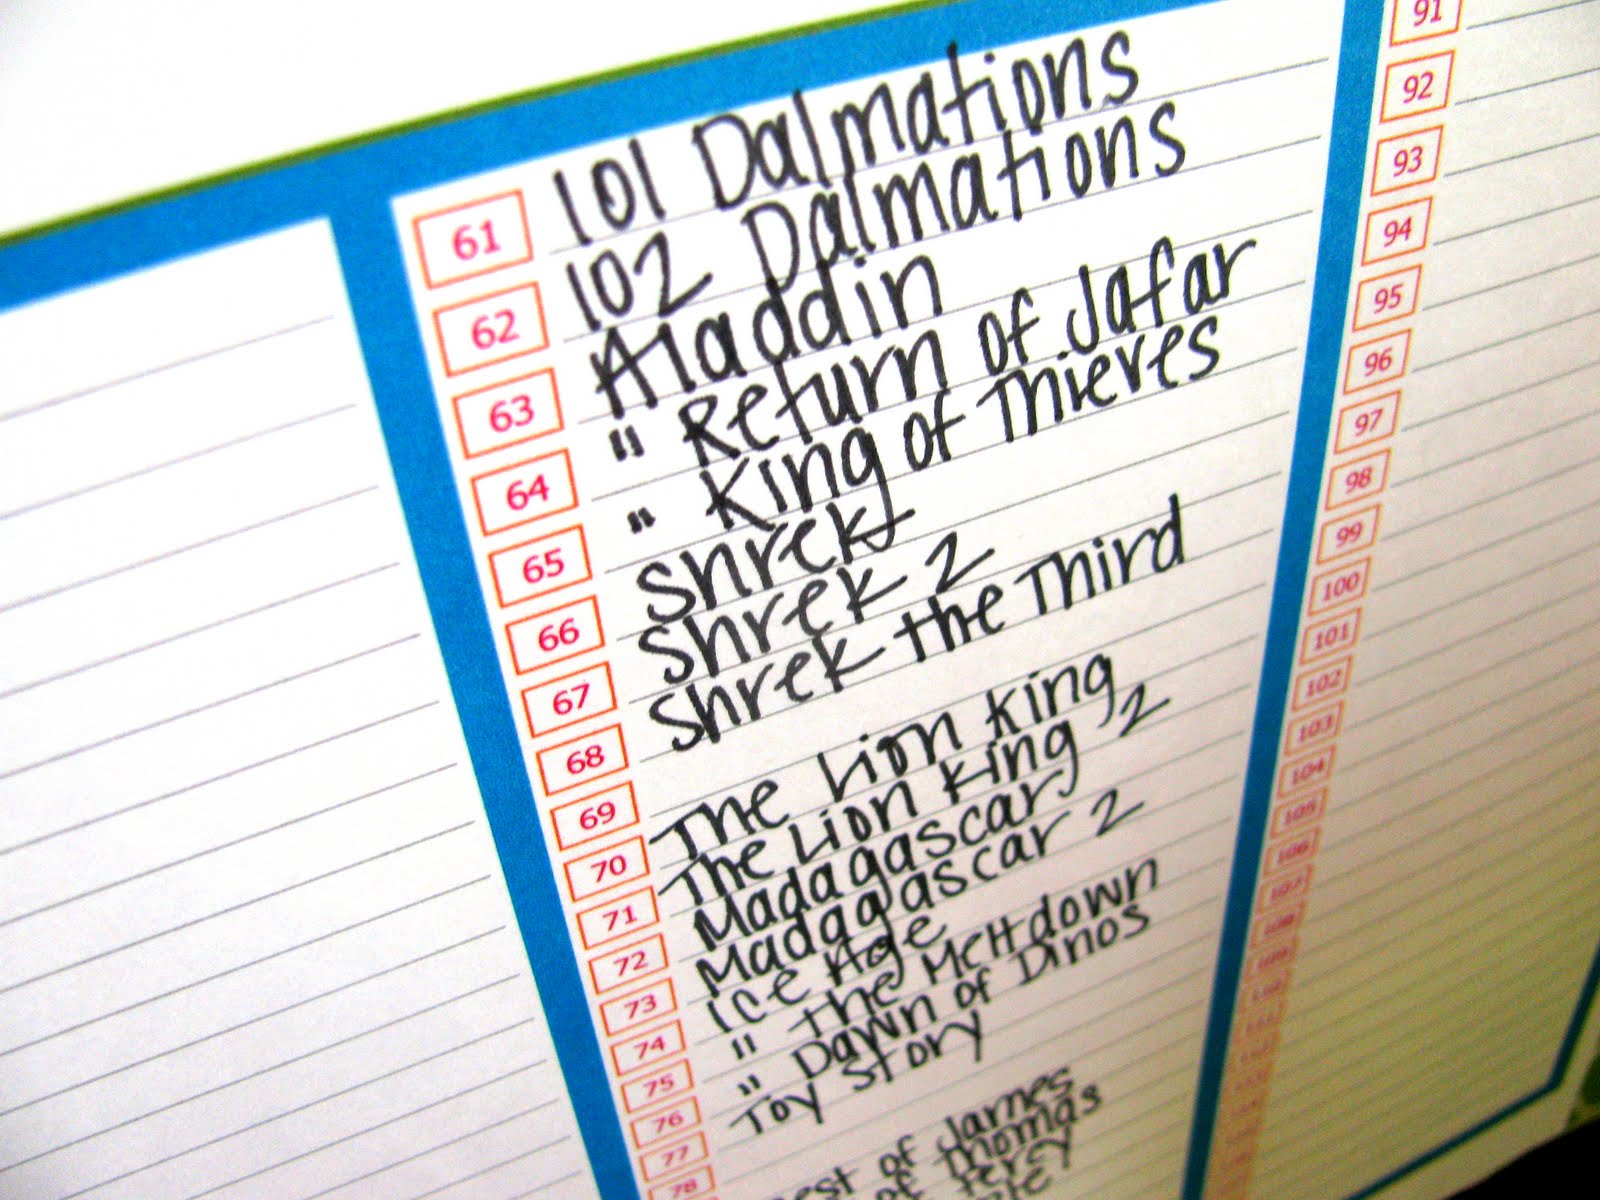 61 101 Dalmations
62 102 Dalmations
63 Aladdin
64 " Return of Jafar
65 " King of Thieves
66 Shrek
67 Shrek 2
68 Shrek the Third
69
70 The Lion King
71 The Lion King 2
72 Madagascar
73 Madagascar 2
74 Ice Age
75 " the Meltdown
76 " Dawn of Dinos
77 Toy Story
78
of James
of Thomas
Percy
91
92
93
94
95
96
97
98
99
100
101
102
103
104
105
106
107
108
109